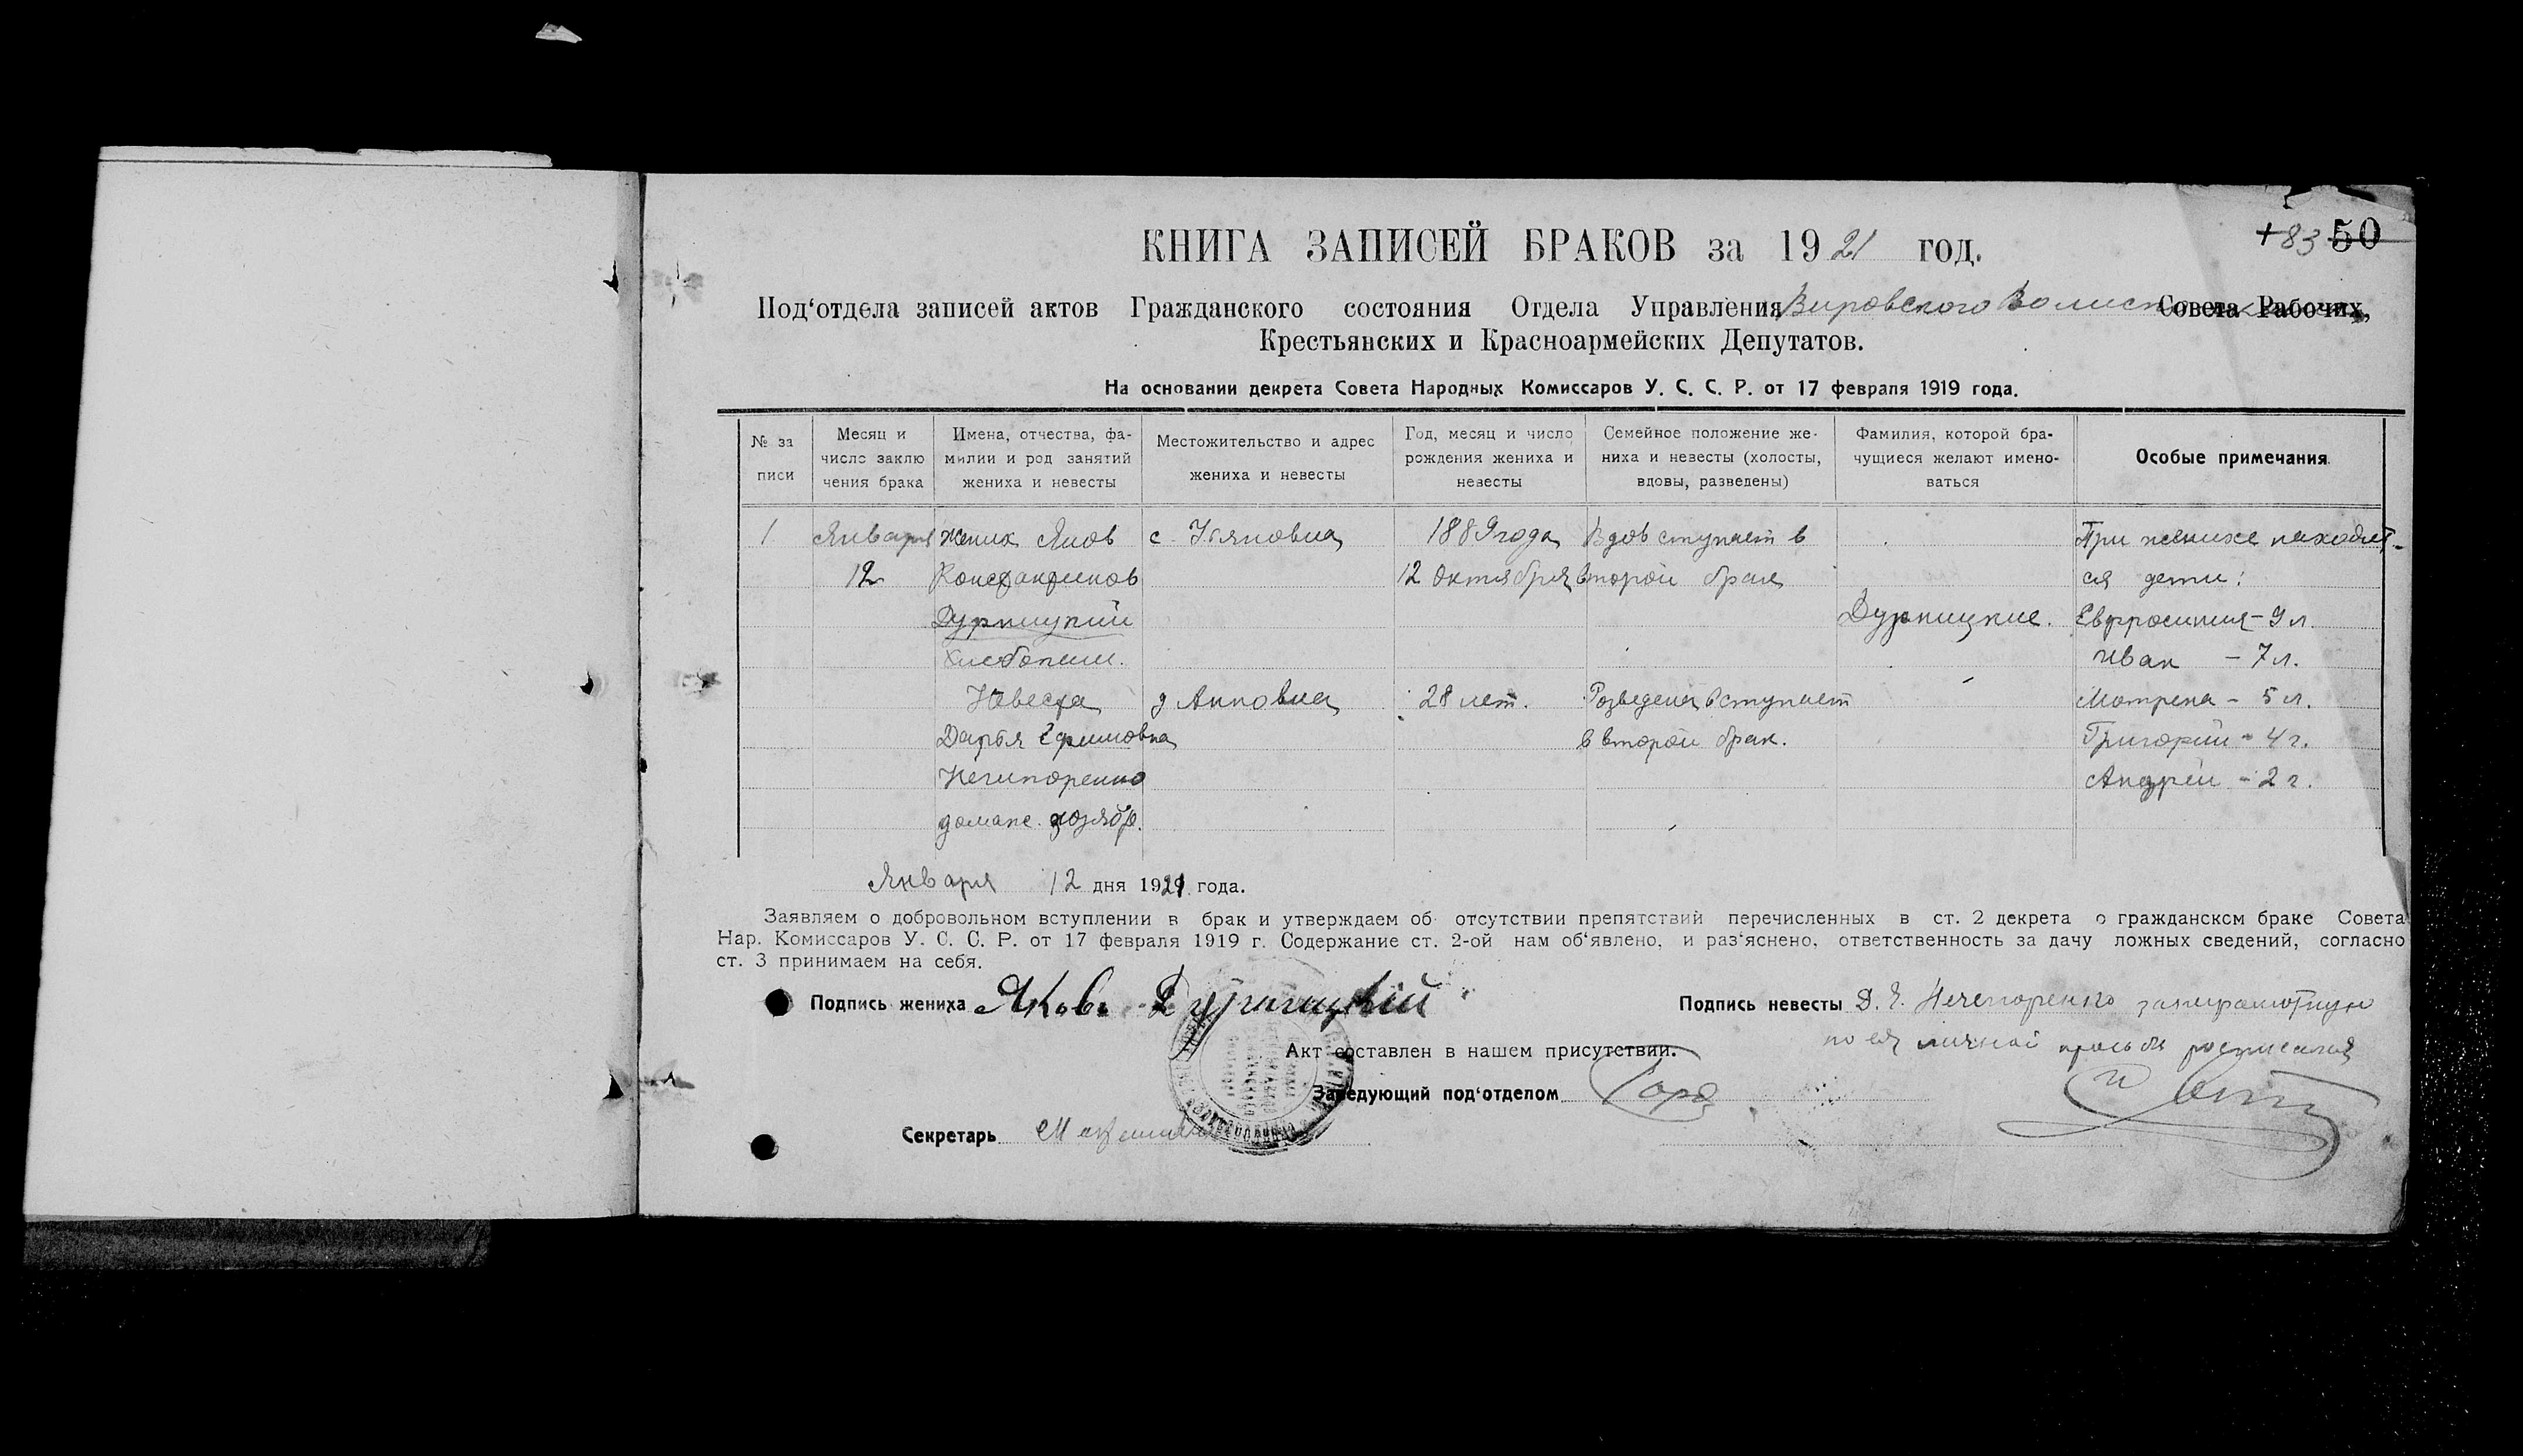 +83 50
КНИГА ЗАПИСЕЙ БРАКОВ за 1921 год.
Под‘отдела записей актов Гражданского состояния Отдела Управления Вировского Совета Рабочих,
Крестьянских и Красноармейских Депутатов.
На основании декрета Совета Народных Комиссаров У. С. С. Р. от 17 февраля 1919 года.
№ за
писи
Месяц и
число заклю
чения брака
Имена, отчества, фа-
милии и род занятий
жениха и невесты
Местожительство и адрес
жениха и невесты
Год, месяц и число
рождения жениха и
невесты
Семейное положение же-
ниха и невесты (холосты,
вдовы, разведены)
Фамилия, которой бра-
чущиеся желают имено-
ваться
Особые примечания
1 Января жених Яков с. Ульяновка 1889 года Вдов ступает в При женихе находят-
12 Константинов 12 Октября второй брак ся дети:
Дурницкий Дурницкие. Евфросиния – 9 л.
Хлебопаш. Иван – 7 л.
Невеста д Анновка 28 лет. Розведена вступает Мотрена – 5 л.
Дарья Ефимовна в второй брак. Григорий – 4 г.
Нечипоренко Андрей – 2 г.
домаш. хозяйс.
Января 12 дня 1921 года.
Заявляем о добровольном вступлении в брак и утверждаем об отсутствии препятствий перечисленных в ст. 2 декрета о гражданском браке Совета
Нар. Комиссаров У. С. С. Р. от 17 февраля 1919 г. Содержание ст. 2-ой нам об‘явлено, и раз‘яснено, ответственность за дачу ложных сведений, согласно
ст. 3 принимаем на себя.
Подпись жениха Яковъ Дурницкий Подпись невесты Д. Е. Нечепоренко
по ея личной просьбе росписался
Акт составлен в нашем присутствии.
Заведующий под‘отделом
Секретарь